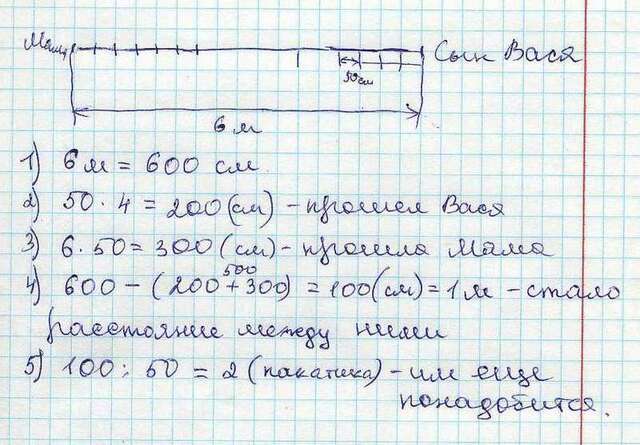 Мама Сын Вася
50см
6 м
1) 6 м = 600 см.
2) 50 · 4 = 200 (см) - прошел Вася
3) 6 · 50 = 300 (см) - прошла Мама
500
4) 600 - (200 + 300) = 100 (см) = 1 м - стало
расстояние между ними
5) 100 : 50 = 2 (пакатика) - им еще
понадобится.